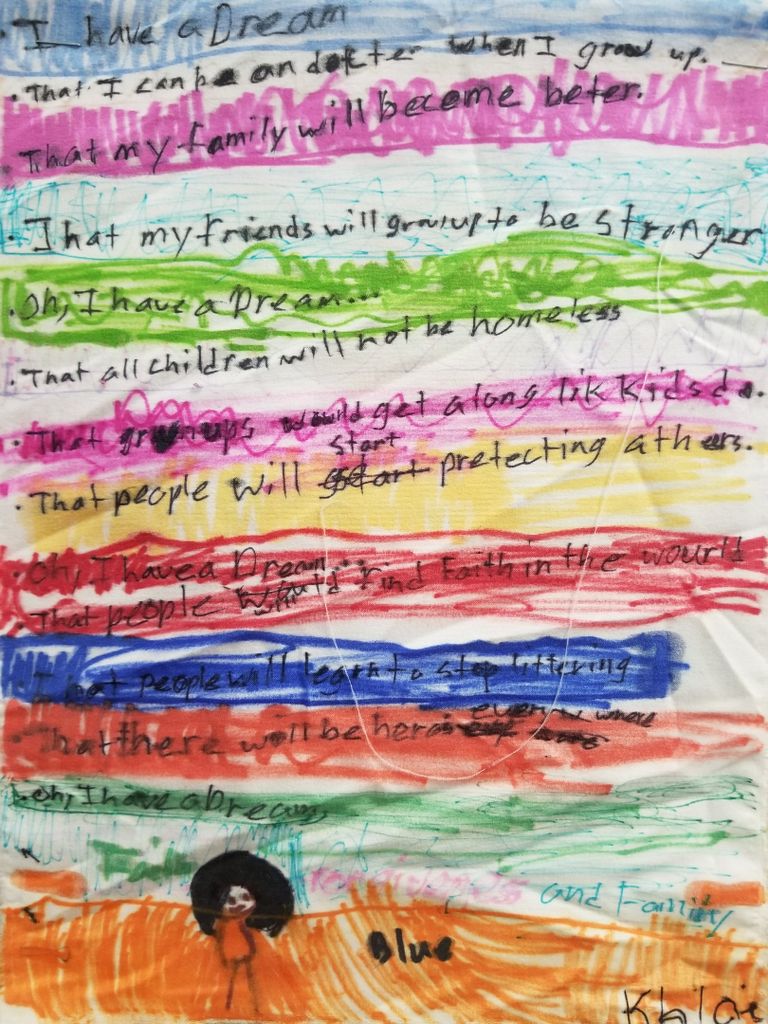 • I have a Dream
• That I can be an dokter when I grow up.
• That my family will become beter.
• That my friends will grow up to be stronger
• Oh, I have a Dream...
• That all children will not be homeless
• That grownups would get along lik Kids do.
• That people will start pretecting athers.
• Oh, I have a Dream...
• That people will find Faith in the wourld
• That people will learn to stop littering
• That there will be heros everywhere
• Oh, I have a Dream
Faith and Family
Blue
Khloi